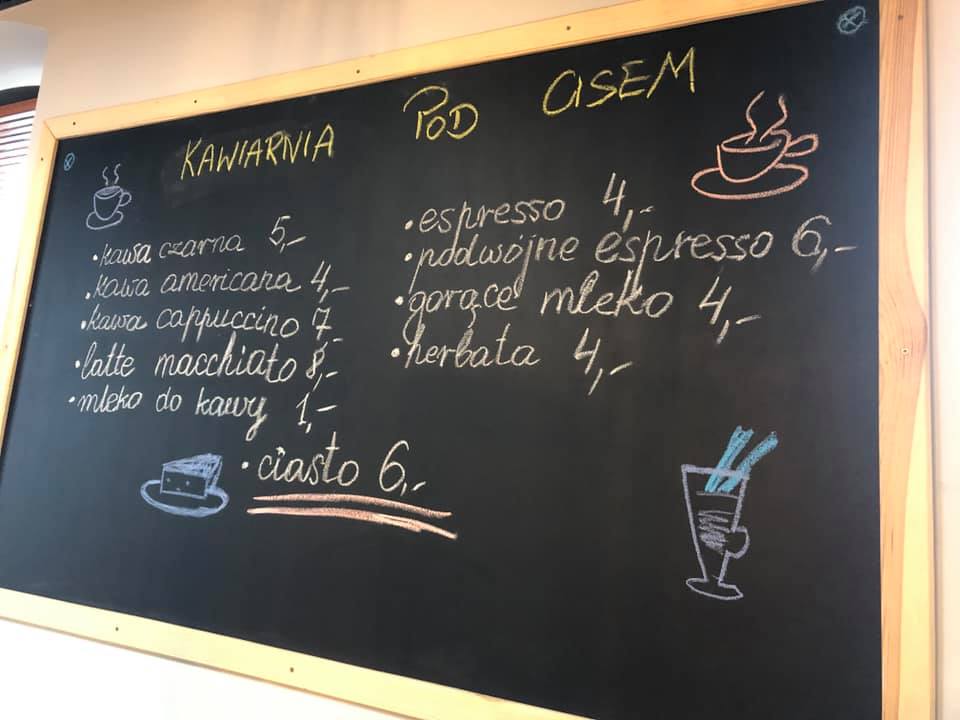 KAWIARNIA POD CISEM
• kawa czarna 5,-
• kawa americana 4,-
• kawa cappuccino 7,-
• latte macchiato 8,-
• mleko do kawy 1,-
• espresso 4,-
• podwójne espresso 6,-
• gorące mleko 4,-
• herbata 4,-
• ciasto 6,-